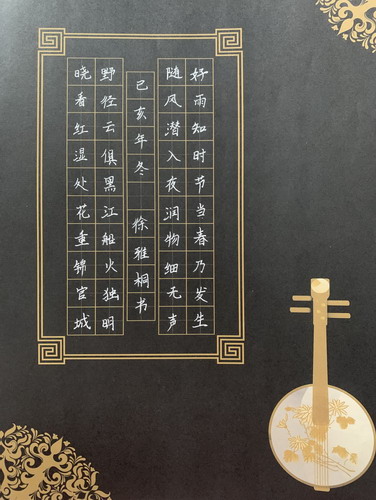 好雨知时节当春乃发生
随风潜入夜润物细无声
己亥年冬 徐雅桐书
野径云俱黑江船火独明
晓看红湿处花重锦官城